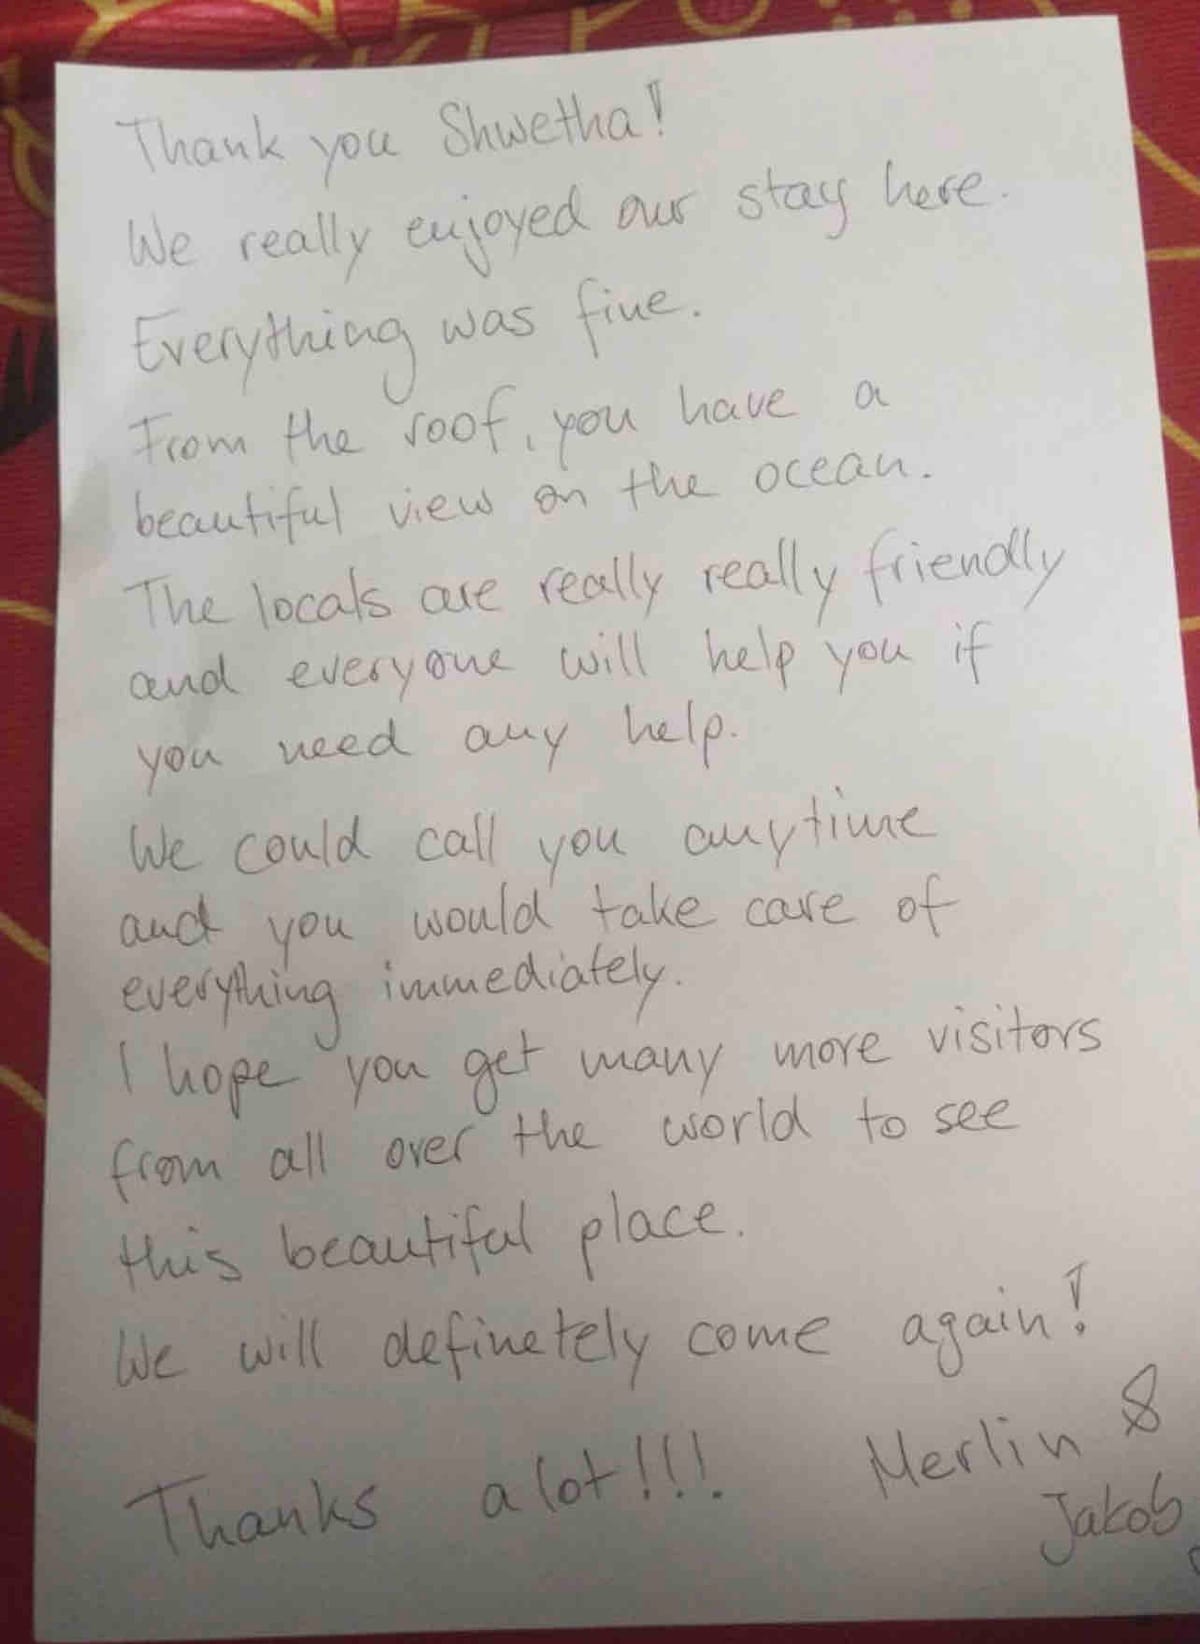 Thank you Shwetha!
We really enjoyed our stay here.
Everything was fine.
From the roof, you have a
beautiful view on the ocean.
The locals are really really friendly
and everyone will help you if
you need any help.
We could call you anytime
and you would take care of
everything immediately.
I hope you get many more visitors
from all over the world to see
this beautiful place.
We will definetely come again!
Thanks a lot!!! Merlin &
Jakob